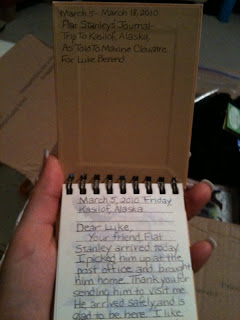 March 5 - March 18, 2010
Flat Stanley's Journal
Trip to Kasilof, Alaska
As Told To Maxine Clouatre
For Luke Berend
March 5, 2010 Friday
Kasilof, Alaska
Dear Luke,
Your friend Flat
Stanley arrived today.
I picked him up at the
post office and brought
him home. Thank you for
sending him to visit me.
He arrived safely, and is
glad to be here. I like